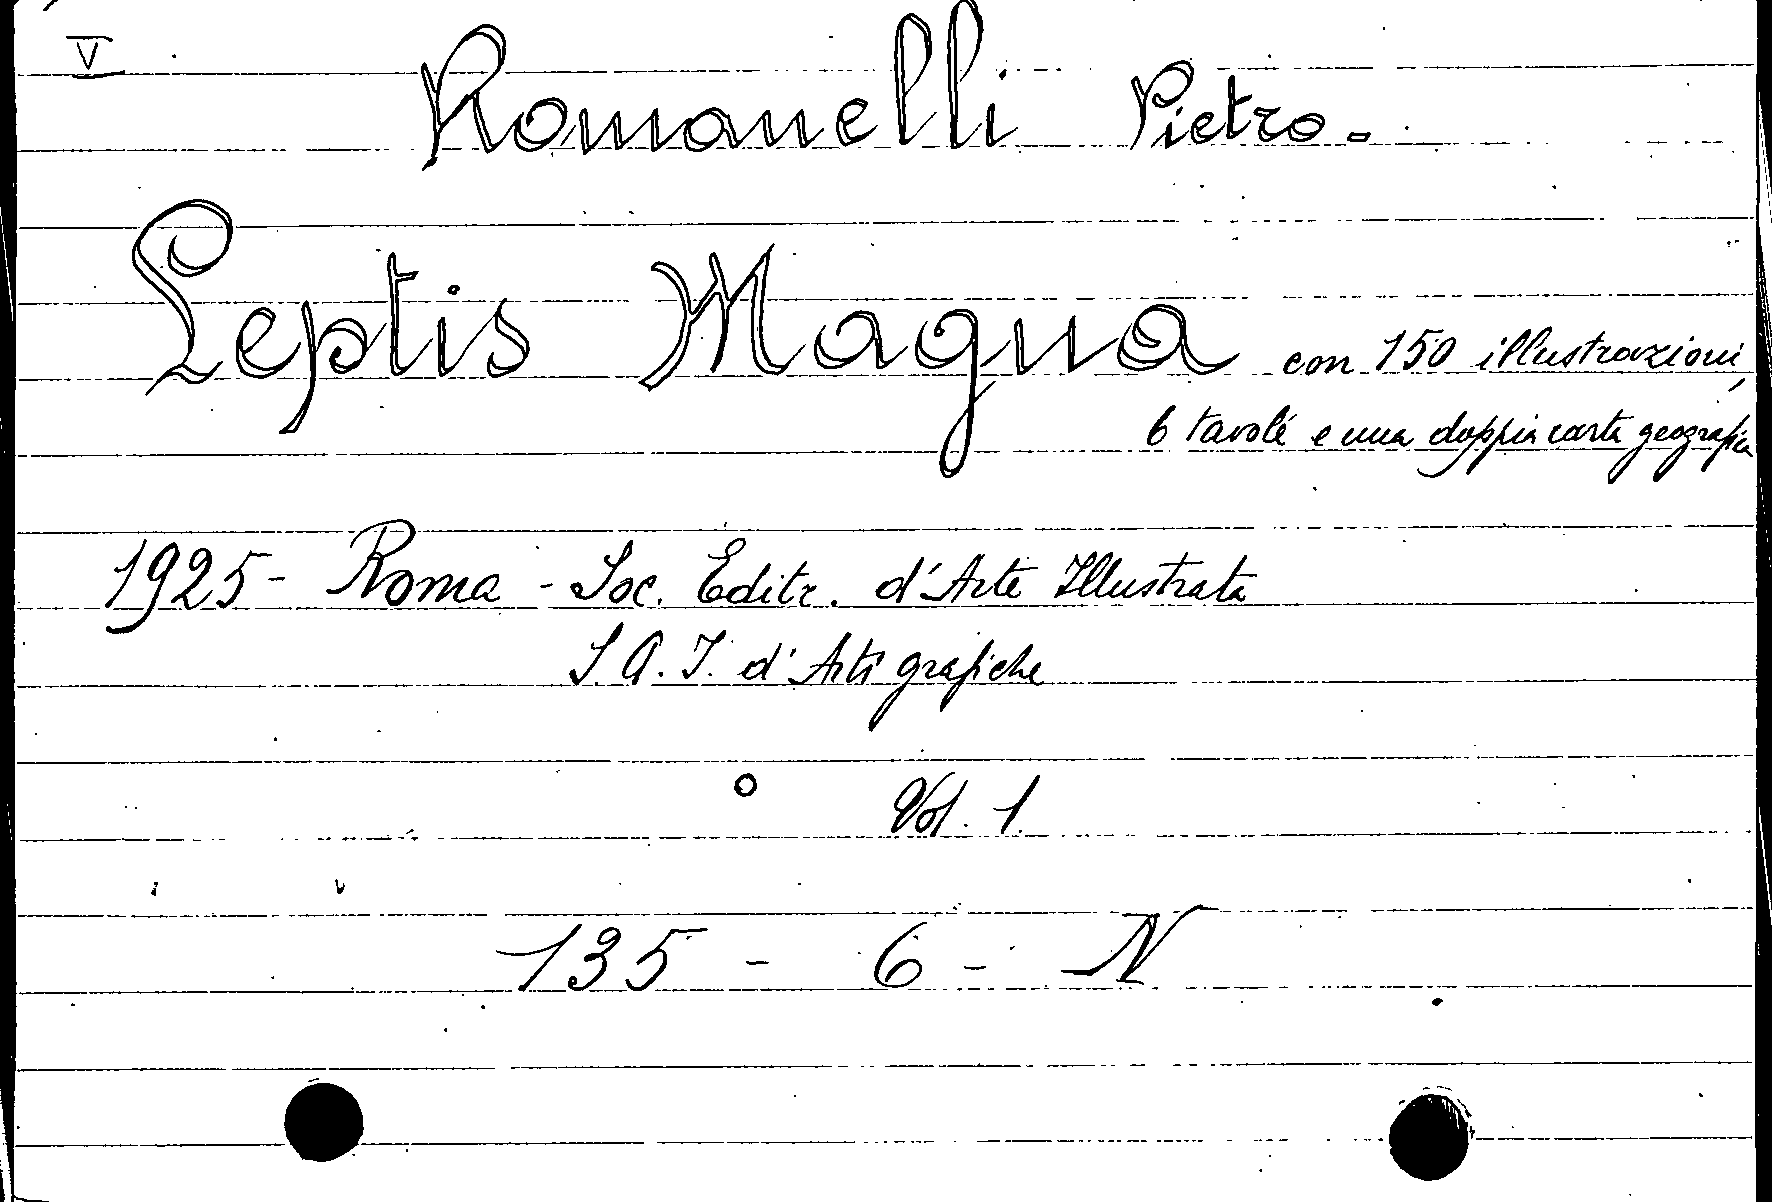 V
Romanelli Pietro.
Leptis Magna con 150 illustrazioni,
6 tavole e una doppia carta geografica
1925 - Roma - Soc. Editr. d'Arte Illustrata
S. A. I. d'Arti grafiche
Vol. 1
135 - 6 - N